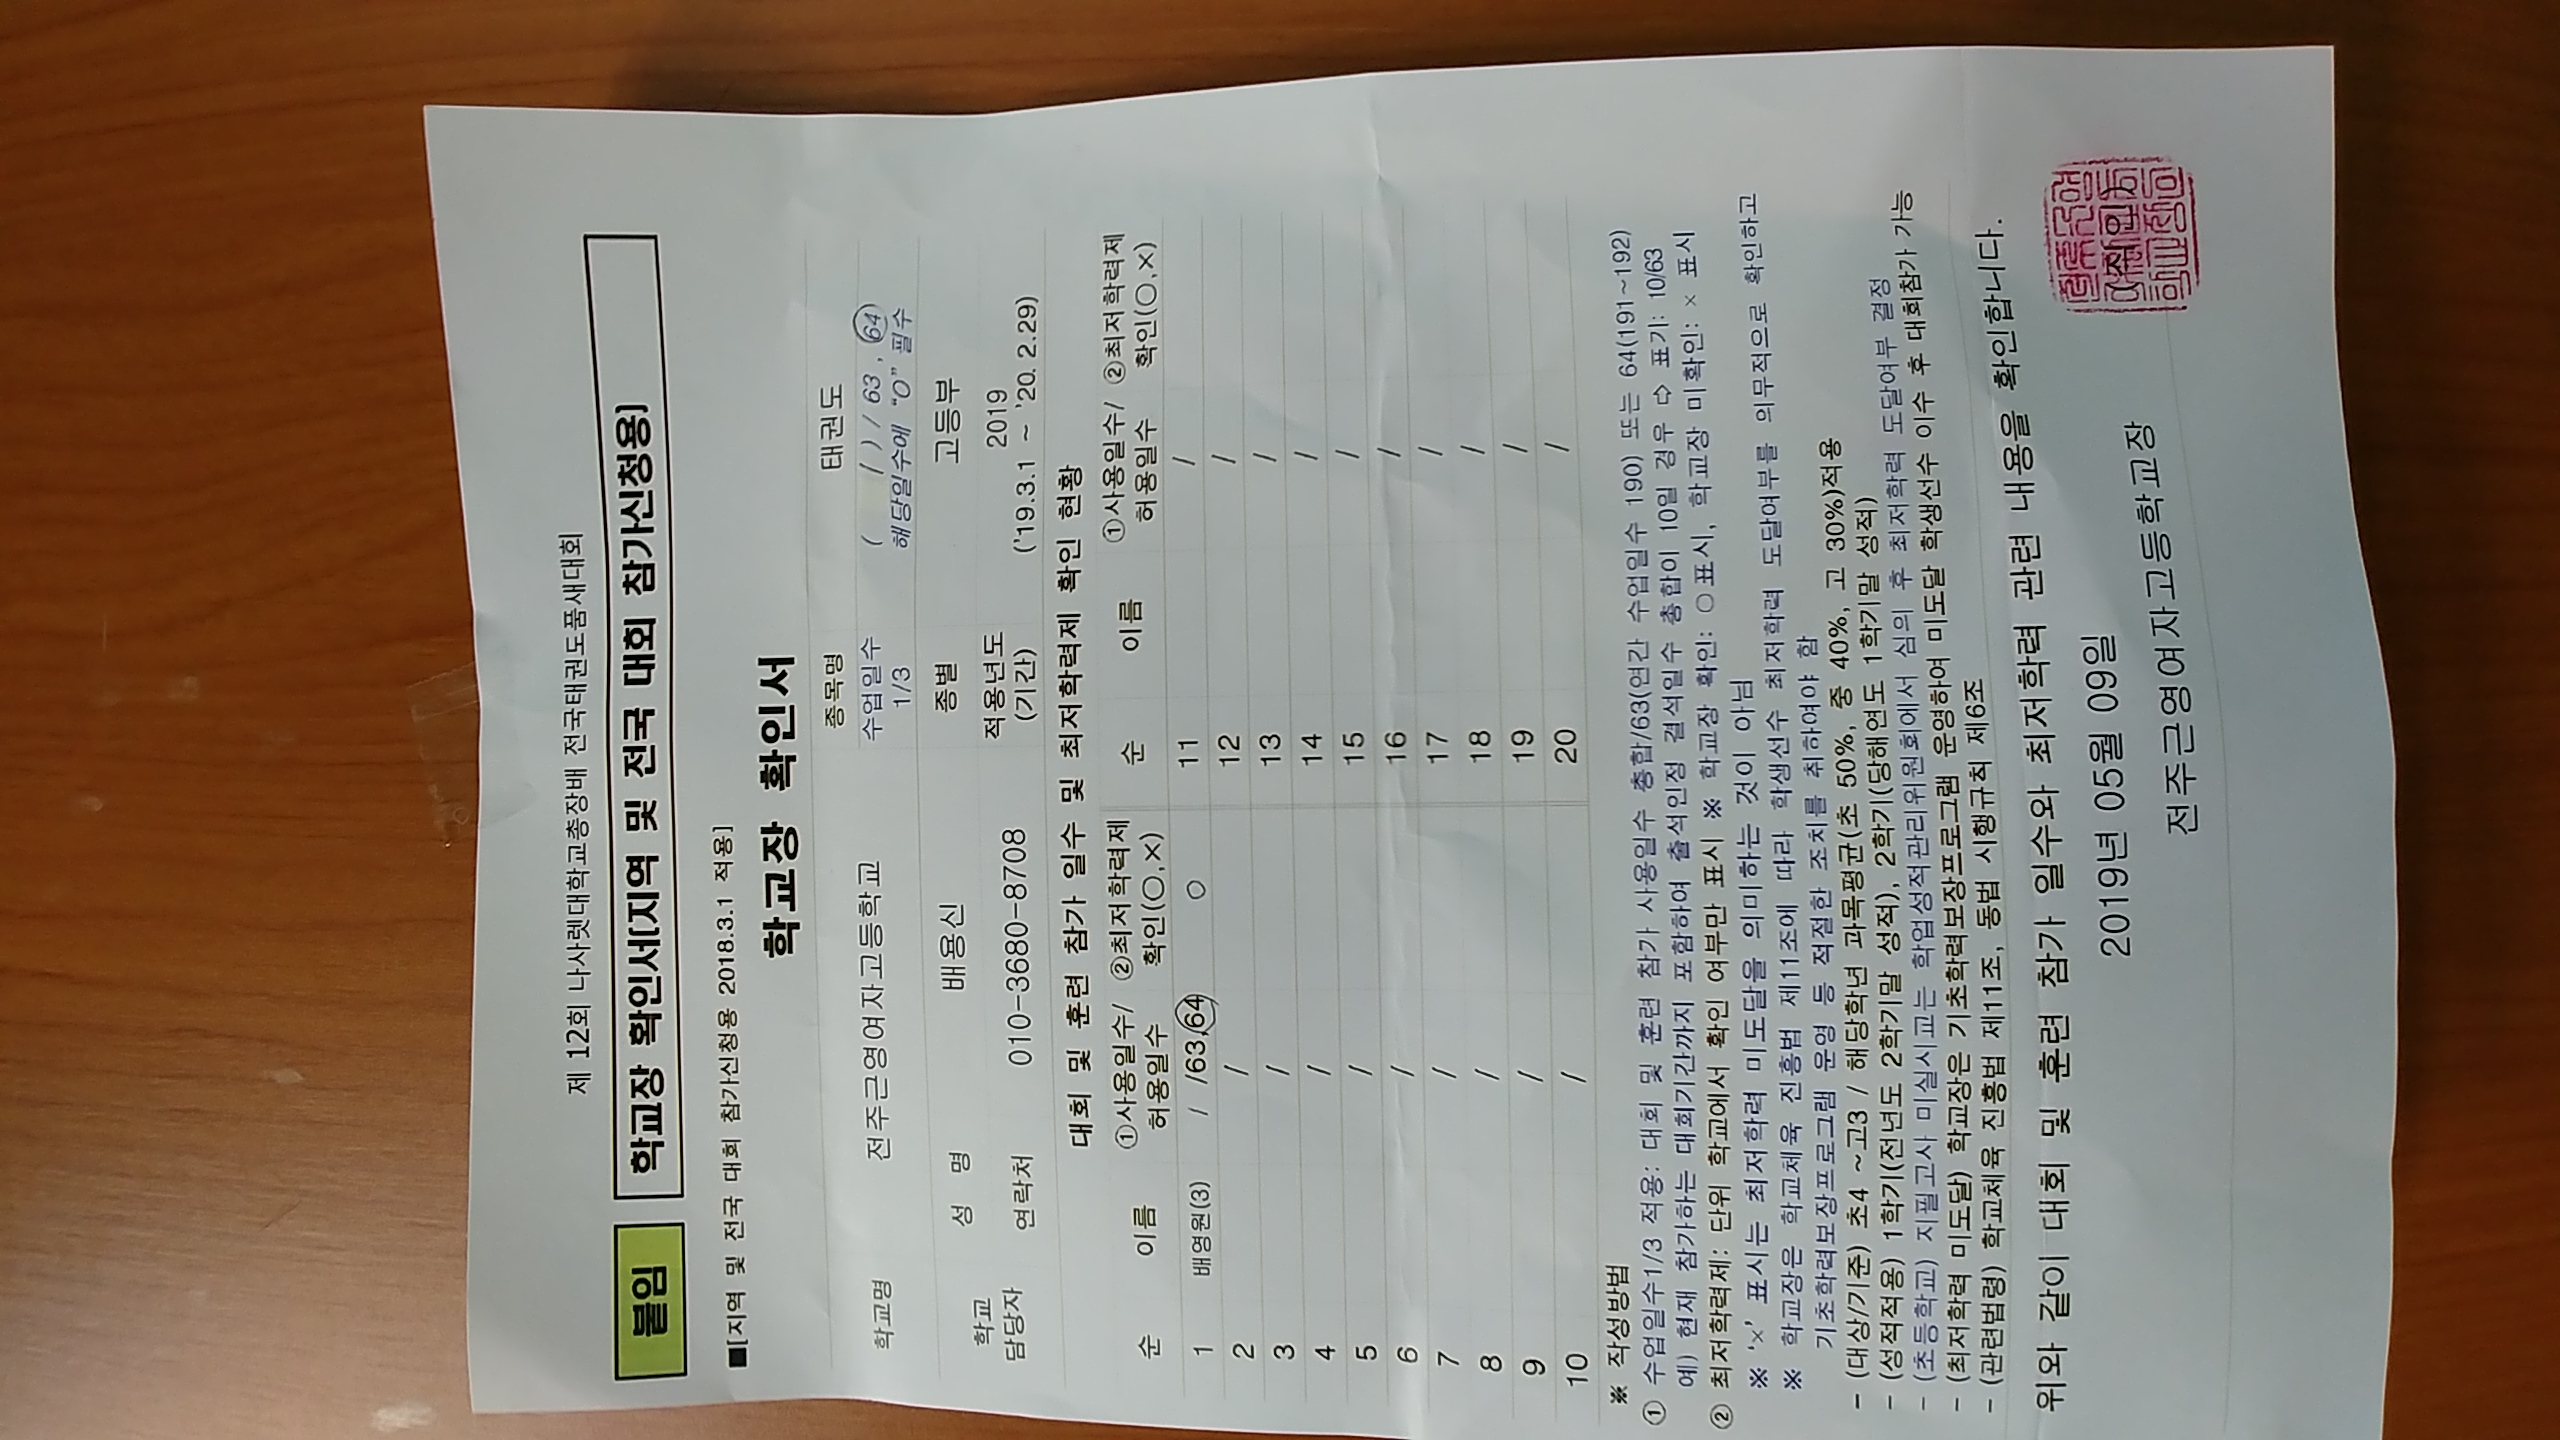 제 12회 나사렛대학교총장배 전국태권도품새대회
붙임 학교장 확인서[지역 및 전국 대회 참가신청용]
■[지역 및 전국 대회 참가신청용 2018.3.1 적용]
학교장 확인서
학교명 전주근영여자고등학교 종목명 태권도
수업일수 1/3 ( / ) / 63 , 64
해당일수에 "O" 필수
학교 담당자 성 명 배용신 종별 고등부
연락처 010-3680-8708 적용년도 (기간) 2019
('19.3.1 ~ '20. 2.29)
대회 및 훈련 참가 일수 및 최저학력제 확인 현황
순 이름 ①사용일수/ 허용일수 ②최저학력제 확인(○,×) 순 이름 ①사용일수/ 허용일수 ②최저학력제 확인(○,×)
1 배영원(3) / /63,64 ○ 11 /
2 / 12 /
3 / 13 /
4 / 14 /
5 / 15 /
6 / 16 /
7 / 17 /
8 / 18 /
9 / 19 /
10 / 20 /
※ 작성방법
① 수업일수1/3 적용: 대회 및 훈련 참가 사용일수 총합/63(연간 수업일수 190) 또는 64(191~192)
예) 현재 참가하는 대회기간까지 포함하여 출석인정 결석일수 총합이 10일 경우 ⇨ 표기: 10/63
② 최저학력제: 단위 학교에서 확인 여부만 표시 ※ 학교장 확인: ○표시, 학교장 미확인: × 표시
※ '×' 표시는 최저학력 미도달을 의미하는 것이 아님
※ 학교장은 학교체육 진흥법 제11조에 따라 학생선수 최저학력 도달여부를 의무적으로 확인하고
기초학력보장프로그램 운영 등 적절한 조치를 취하여야 함
- (대상/기준) 초4 ~고3 / 해당학년 과목평균(초 50%, 중 40%, 고 30%)적용
- (성적적용) 1학기(전년도 2학기말 성적), 2학기(당해연도 1학기말 성적)
- (초등학교) 지필고사 미실시교는 학업성적관리위원회에서 심의 후 최저학력 도달여부 결정
- (최저학력 미도달) 학교장은 기초학력보장프로그램 운영하여 미도달 학생선수 이수 후 대회참가 가능
- (관련법령) 학교체육 진흥법 제11조, 동법 시행규칙 제6조
위와 같이 대회 및 훈련 참가 일수와 최저학력 관련 내용을 확인합니다.
2019년 05월 09일
전주근영여자고등학교장 (직인)